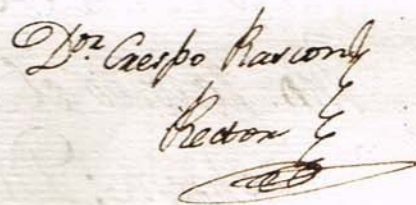 Dor. Crespo Rascon
Rector